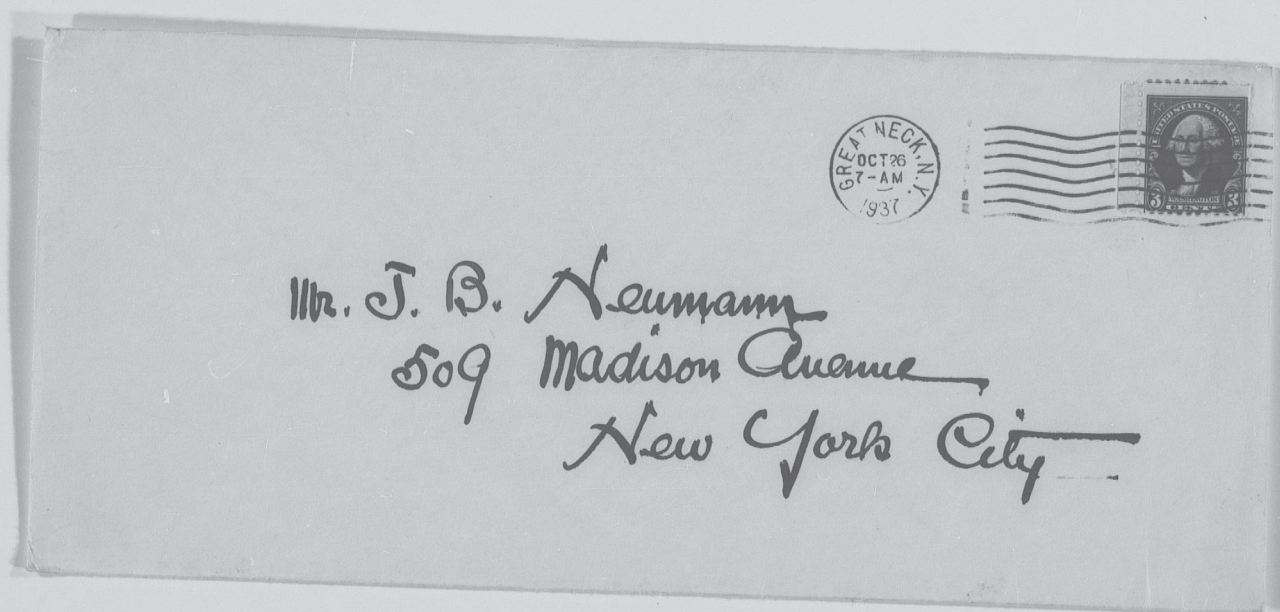 GREAT NECK, N.Y.
OCT 26
7-AM
1937
UNITED STATES POSTAGE
3 WASHINGTON 3
CENTS
Mr. J. B. Neumann
509 Madison Avenue
New York City